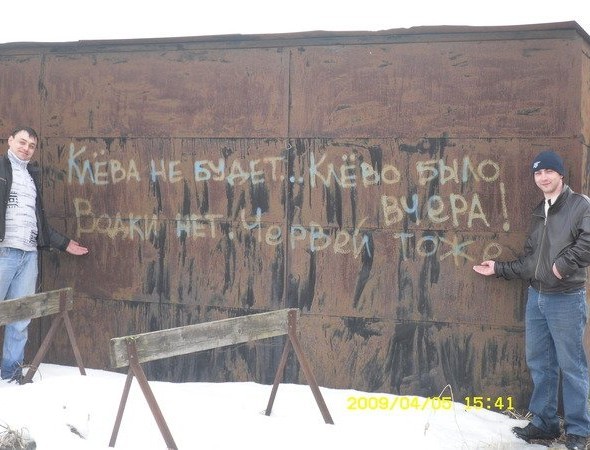 Клёва не будет... Клёво было
вчера!
Водки нет. Червей тоже
2009/04/05 15:41